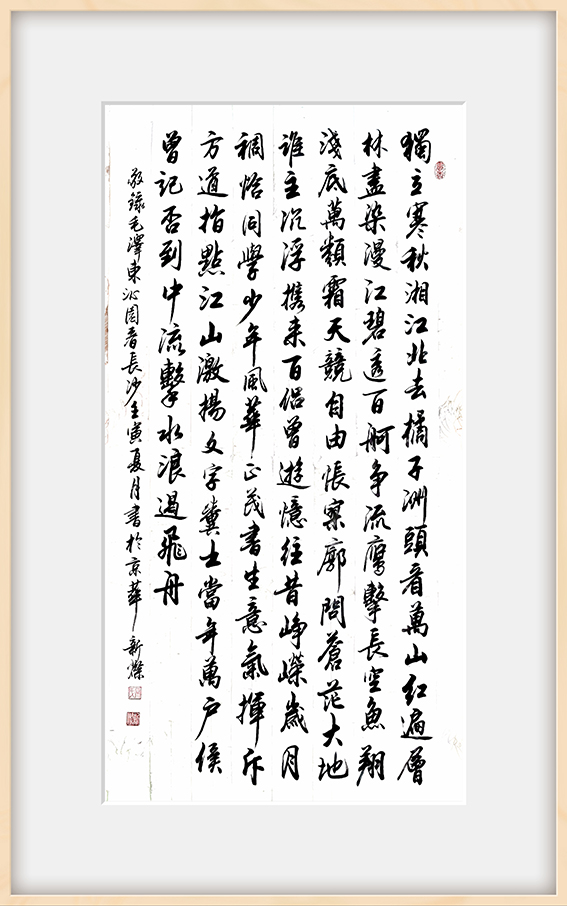 獨立寒秋湘江北去橘子洲頭看萬山紅遍層
林盡染漫江碧透百舸争流鷹擊長空魚翔
淺底萬類霜天競自由悵寥廓問蒼茫大地
誰主沉浮攜来百侣曾遊憶往昔崢嶸歲月
稠恰同學少年風華正茂書生意氣揮斥
方遒指點江山激揚文字糞土當年萬户侯
曾記否到中流擊水浪遏飛舟
敬錄毛澤東沁園春長沙壬寅夏月書於京華新燦